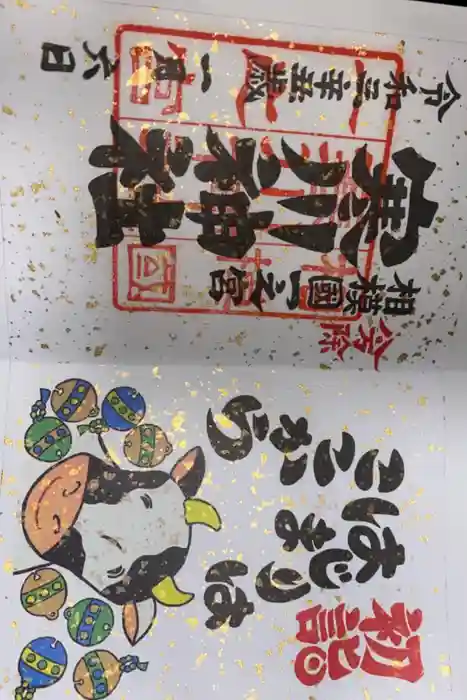 初詣
はじまりは
ここから
八方除
相模國一之宮
寒川神社
令和三年丑歳一月六日